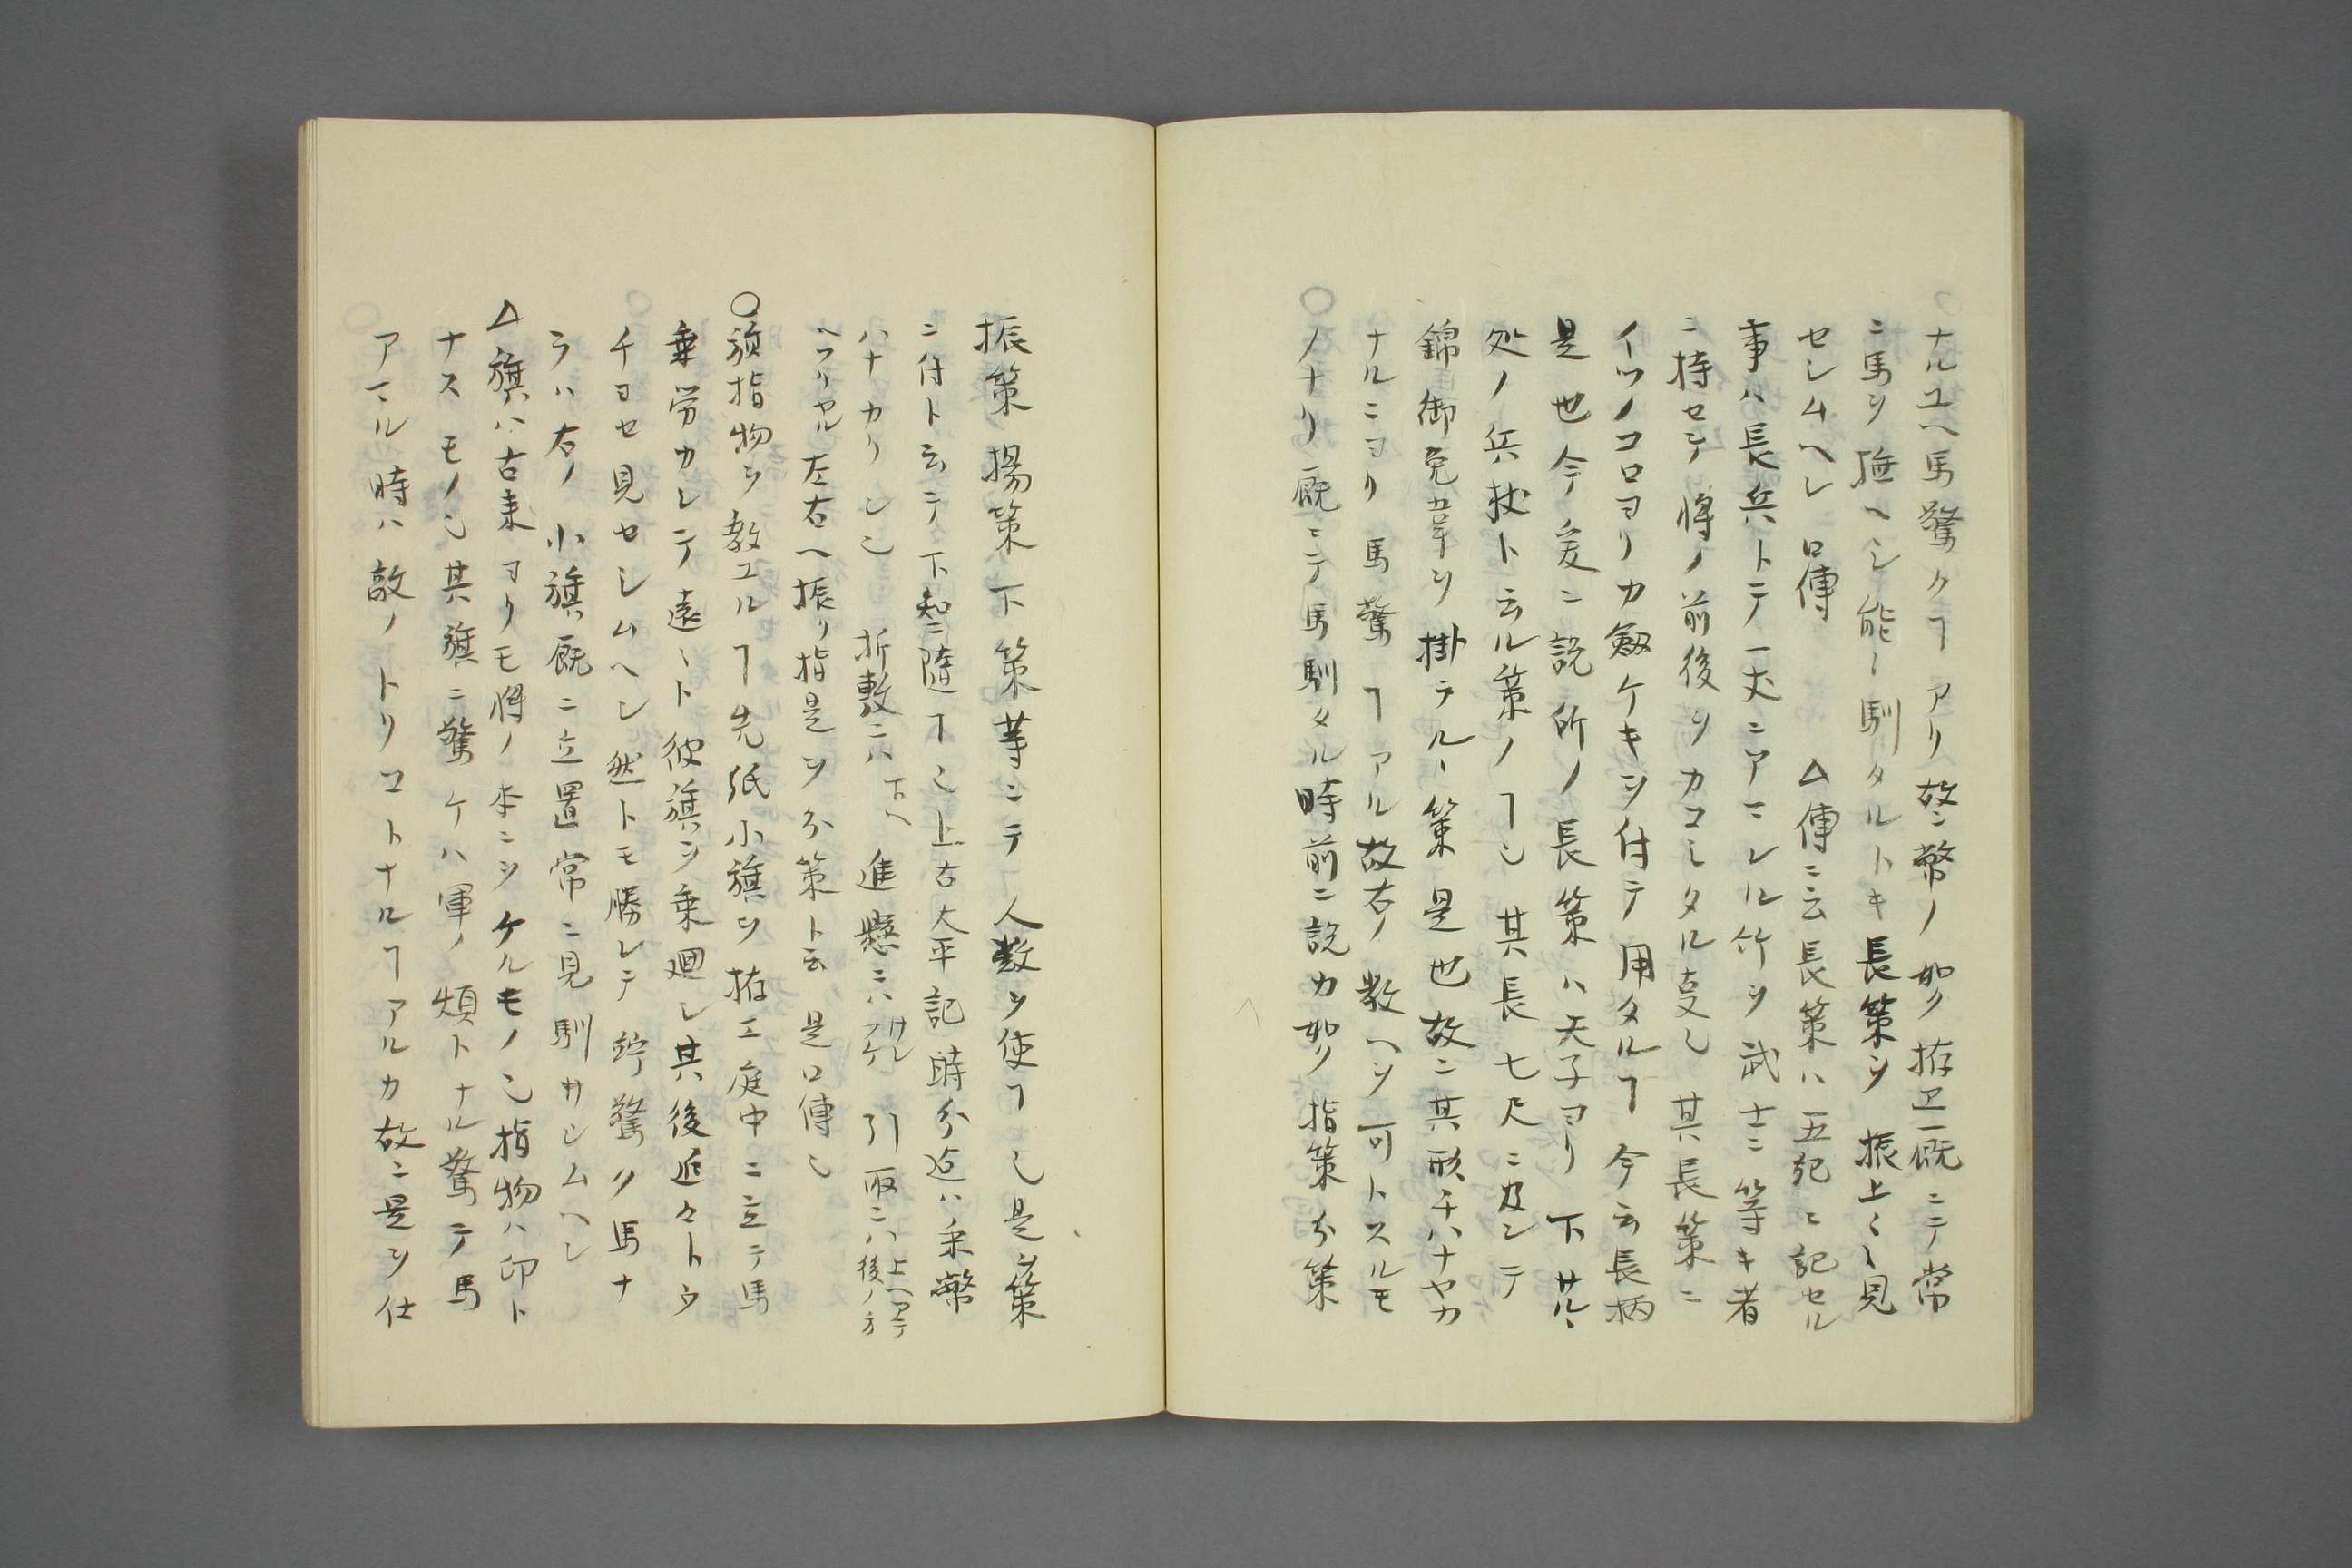 ナルユヘ馬驚クヿアリ故ニ幣ノ如ク拵ヱ厩ニテ常
ニ馬ヲ繋ヘシ能々馴タルトキ長策ヲ振上々々見
セシムヘシ口傳 △傳ニ云長策ハ五紀ニ記セル
事ハ長兵トテ一丈ニアマレル竹ヲ武士ニ等キ者
ニ持セテ将ノ前後ヲカコミタル叓也其長策ニ
イツノコロヨリカ劔ケキヲ付テ用タルヿ今云長柄
是也今爰ニ説所ノ長策ハ天子ヨリ下サルヽ
処ノ兵杖ト云ル策ノヿ也其長七尺ニ及ンテ
錦御免革ヲ掛ラルヽ策是也故ニ其形チハナヤカ
ナルニヨリ馬驚ヿアル故右ノ教ヘヲ可トスルモ
ノナリ厩ニテ馬馴タル時前ニ説カ如ク指策分策
振策揚策下策等ニテ人数ヲ使ヿ也是ヲ策
ニ付ト云テ下知ニ隨ヿ也上古太平記時分迄ハ采幣
ハナカリシ也 折敷ニハ下ヘ 進懸ニハサシアケ 引取ニハ上ヘアテ後ノ方
ヘフリヤル左右ヘ振リ指是ヲ分策ト云是口傳也
○旗指物ヲ教ユルヿ先紙小旗ヲ拵エ庭中ニ立テ馬
乗労カレテ遠々ト彼旗ヲ乗廻シ其後近々トウ
チヨセ見セシムヘシ然トモ勝レテ驚ク馬ナ
ラハ右ノ小旗厩ニ立置常ニ見馴サシムヘシ
△旗ハ古来ヨリモ将ノ本ニツケルモノ也指物ハ印ト
ナスモノ也其旗ニ驚ケハ軍ノ煩トナル驚テ馬
アマル時ハ敵ノトリコトナルヿアルカ故ニ是ヲ仕